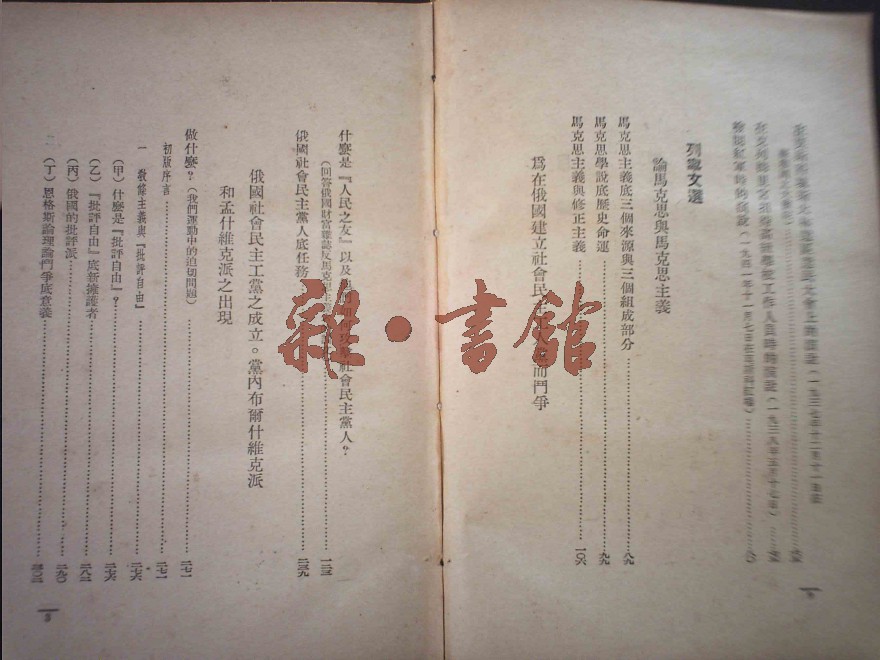 論紅軍時的演說(一九四一年十一月七日在莫斯科紅場)
列寧文選
論馬克思與馬克思主義
馬克思主義底三個來源與三個組成部分……八九
馬克思學說底歷史命運……九九
馬克思主義與修正主義……一〇六
爲在俄國建立社會民主 而鬥爭
什麽是『人民之友』以及 社會民主黨人?
(回答俄國財富雜誌反馬克思主義 ……一二三
俄國社會民主黨人底任務……二三九
俄國社會民主工黨之成立。黨內布爾什維克派
和孟什維克派之出現
做什麽?(我們運動中的迫切問題)……二七一
初版序言……二七一
一 敎條主義與『批評自由』……二七六
(甲)什麽是『批評自由』?……二七六
(乙)『批評自由』底新擁護者……二八二
(丙)俄國的批評派……二九〇
(丁)恩格斯論理論鬥爭底意義
5
雜·書館